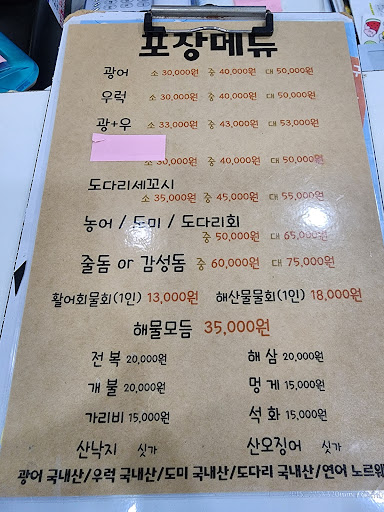 포장메뉴
광어 소 30,000원 중 40,000원 대 50,000원
우럭 소 30,000원 중 40,000원 대 50,000원
광+우 소 33,000원 중 43,000원 대 53,000원
소 30,000원 중 40,000원 대 50,000원
도다리세꼬시
소 35,000원 중 45,000원 대 55,000원
농어 / 도미 / 도다리회
중 50,000원 대 65,000원
줄돔 or 감성돔 중 60,000원 대 75,000원
활어회물회(1인) 13,000원 해산물물회(1인) 18,000원
해물모듬 35,000원
전복 20,000원 해삼 20,000원
개불 20,000원 멍게 15,000원
가리비 15,000원 석화 15,000원
산낙지 싯가 산오징어 싯가
광어 국내산/우럭 국내산/도미 국내산/도다리 국내산/연어 노르웨